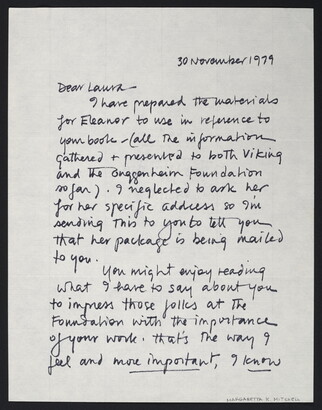 30 November 1979
Dear Laura
I have prepared the materials
for Eleanor to use in reference to
your book - (all the information
gathered + presented to both Viking
and the Guggenheim Foundation
so far). I neglected to ask her
for her specific address so I'm
sending this to you to tell you
that her package is being mailed
to you.
You might enjoy reading
what I have to say about you
to impress those folks at the
Foundation with the importance
of your work. That's the way I
feel and more important, I know
MARGARETTA K. MITCHELL